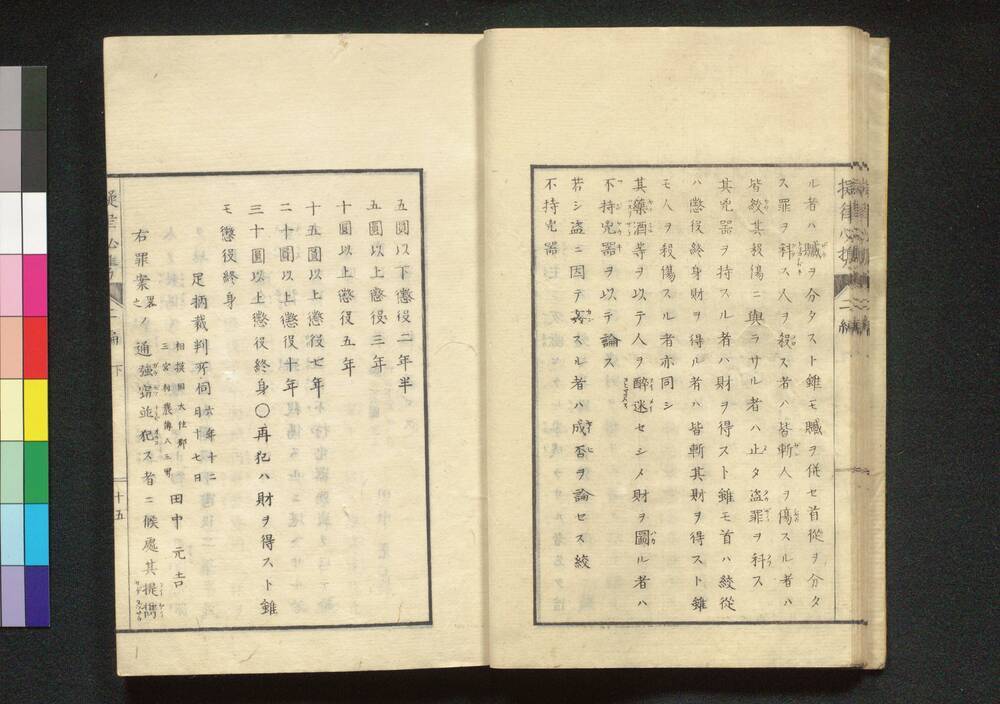 ル者ハ贓ヲ分タスト雖モ贓ヲ併セ首從ヲ分タ
ス罪ヲ科ス人ヲ殺ス者ハ皆斬人ヲ傷スル者ハ
皆絞其殺傷ニ與ラサル者ハ止タ盜罪ヲ科ス
其兇器ヲ持スル者ハ財ヲ得スト雖モ首ハ絞從
ハ懲役終身財ヲ得ル者ハ皆斬其財ヲ得スト雖
モ人ヲ殺傷スル者亦同シ
其藥酒等ヲ以テ人ヲ醉迷セシメ財ヲ圖ル者ハ
不持兇器ヲ以テ論ス
若シ盜ニ因テ姦スル者ハ成否ヲ論セス絞
不持兇器
五圓以下懲役二年半
五圓以上懲役三年
十圓以上懲役五年
十五圓以上懲役七年
二十圓以上懲役十年
三十圓以上懲役終身〇再犯ハ財ヲ得スト雖
モ懲役終身
足柄裁判所伺六年十二
月十七日
相模國大住郡
三宮村農
田中元吉
右罪案畧之通強竊並犯ス者ニ候處其提携
十五